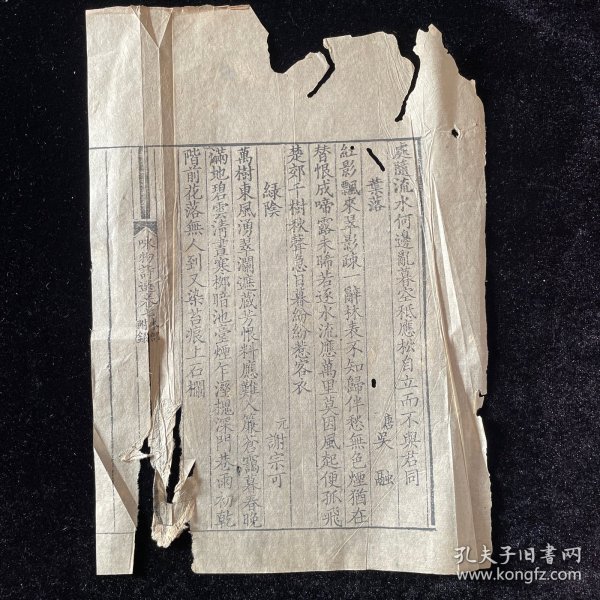 處隨流水何邊亂暮空秪應松自立而不與君同
葉落
唐 吳融
紅影飄來翠影疎一辭林表不知歸伴愁無色煙猶在
替恨成啼露未晞若逐水流應萬里莫因風起便孤飛
楚郊千樹秋聲急日暮紛紛惹客衣
綠陰
元 謝宗可
萬樹東風湧翠瀾遮藏芳悵料應難人簾蒼靄草春晚
滿地碧雲淸晝寒柳暗池臺煙乍溼槐深門巷雨初乾
階前花落無人到又染苔痕上石欄
咏物詩選卷
附錄
孔夫子旧书网
www.kongfz.com